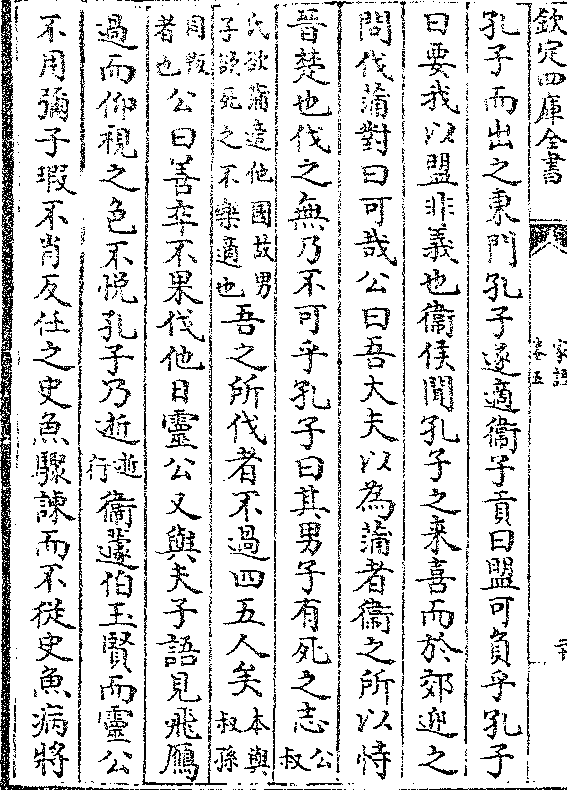 欽定四庫全書
家語
卷五
孔子而出之東門孔子遂適衞子貢曰盟可負乎孔子
曰要我以盟非義也衞侯聞孔子之来喜而於郊迎之
問伐蒲對曰可哉公曰吾大夫以為蒲者衞之所以恃
晉楚也伐之無乃不可乎孔子曰其男子有死之志公叔
氏欲蒲適他國故男子欲死之不樂適也吾之所伐者不過四五人矣本與叔孫
同叛者也公曰善卒不果伐他日靈公又與夫子語見飛鴈
過而仰視之色不悦孔子乃逝逝行衞蘧伯玉賢而靈公
不用彌子瑕不肖反任之史魚驟諫而不從史魚病將